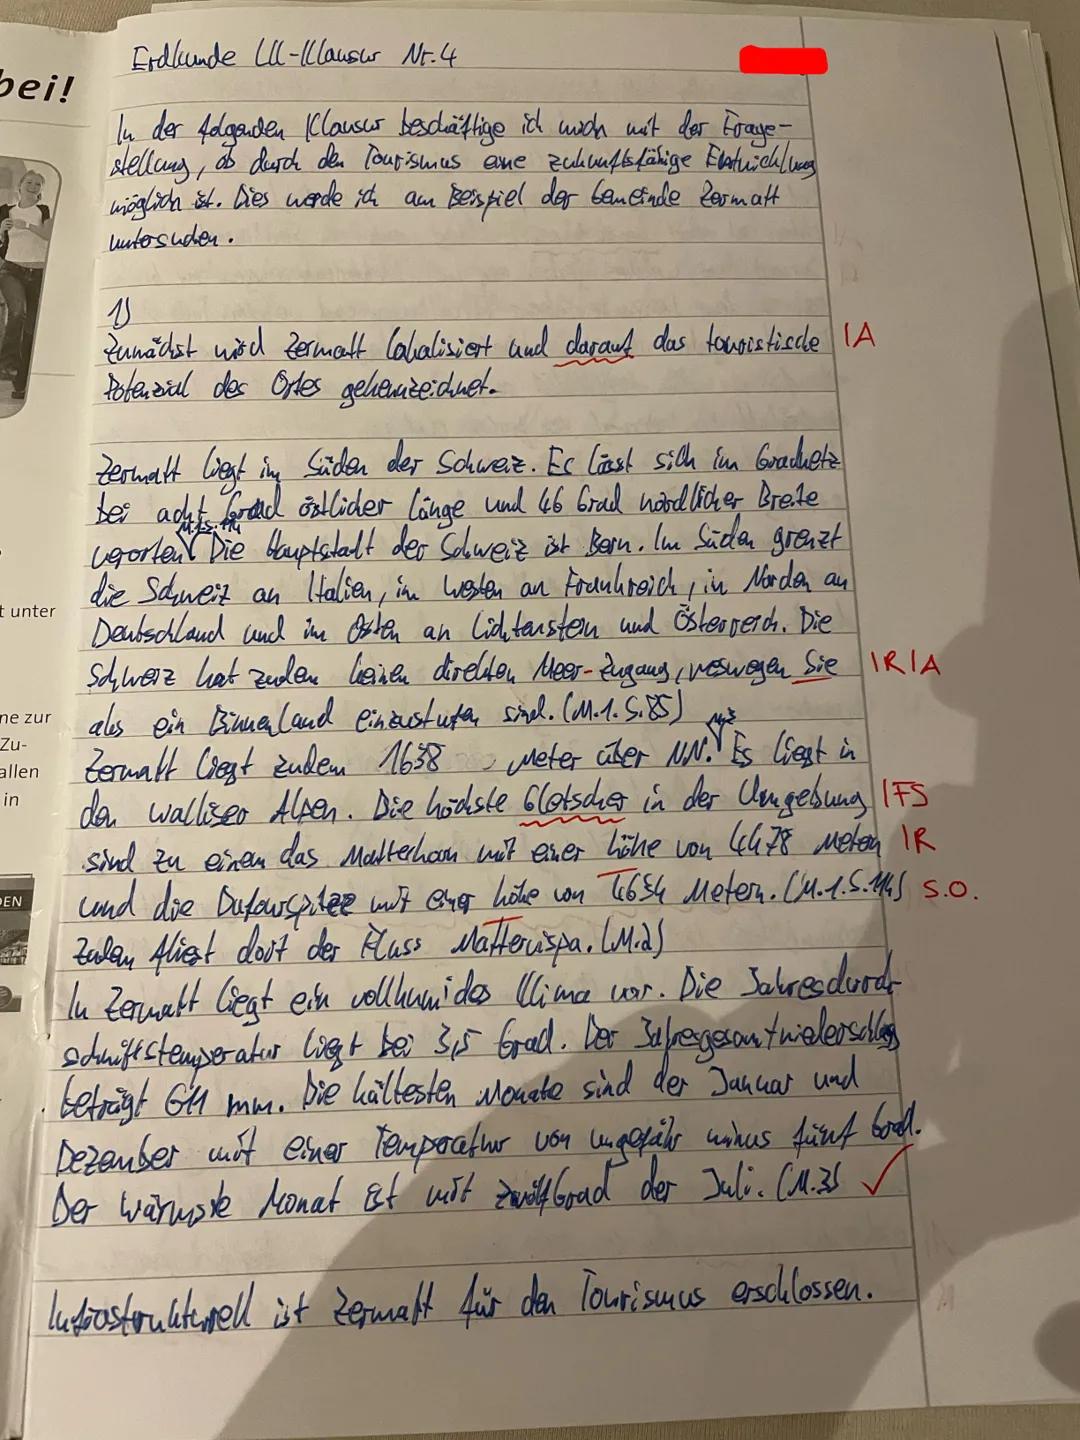 bei!
t unter
ne zur
Zu-
allen
in
DEN
Erdkunde LK-Klausur Nr. 4
In der folgenden Klausur beschäftige ich mich mit der Frage-
stellung, ob durch den Tourismus eine zukunftsfähige Entwicklung
möglich ist. Dies werde ich am Beispiel der Gemeinde Zermatt
untersuchen.
1)
Zunächst wird Zermatt lokalisiert und darauf das touristische IA
Potenzial des Ortes gekennzeichnet.
Zermatt liegt im Süden der Schweiz. Es lässt sich im Gradnetz
bei acht Grad östlicher Länge und 46 Grad nördlicher Breite
verorten. Die Hauptstadt der Schweiz ist Bern. Im Süden grenzt
die Schweiz an Italien, im Westen an Frankreich, in Norden an
Deutschland und im Osten an Lichtenstein und Österreich. Die
Schweiz hat zudem keinen direkten Meer-Zugang, weswegen Sie IRIA
als ein Binnenland einzustufen sind. (M.1. S.85)
Zermatt liegt zudem 1638 Meter über NN. Es liegt in
den walliser Alpen. Die höchste Gletscher in der Umgebung IFS
sind zu einem das Matterhorn mit einer höhe von 4478 Metern IR
und die Dufourspitze mit einer höhe von 4634 Metern. (M.1. S.114) s.o.
Zudem fliest dort der Fluss Mattervispa. (M.2)
In Zermatt liegt ein vollhumides Klima vor. Die Jahresdurch-
schnittstemperatur liegt bei 3,5 Grad. Der Jahresgesamtniederschlag
beträgt 611 mm. Die kältesten Monate sind der Januar und
Dezember mit einer Temperatur von ungefähr minus fünf Grad.
Der wärmste Monat ist mit zwölf Grad der Juli. (M.3)
Infrastrukturell ist Zermatt für den Tourismus erschlossen.